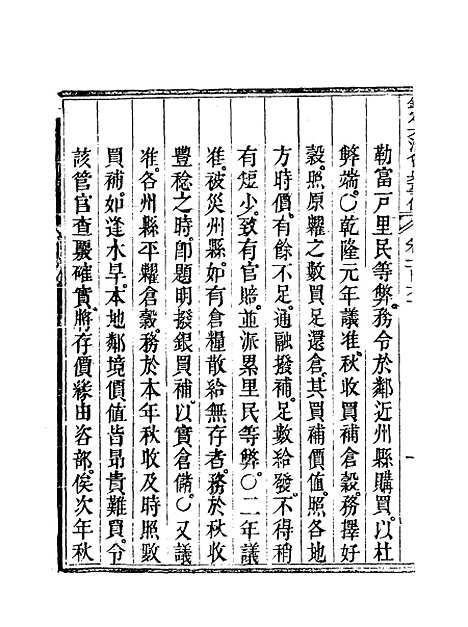 勒富戸里民等弊。務令於鄰近州縣購買。以杜
弊端。○乾隆元年議准。秋收買補倉穀。務擇好
穀。照原糶之數買足還倉。其買補價值。照各地
方時價。有餘不足。通融撥補。足數給發。不得稍
有短少。致有官賠。並派累里民等弊。○二年議
准。被災州縣。如有倉糧散給無存者。務於秋收
豐稔之時。卽題明撥銀買補。以實倉儲。○又議
准。各州縣平糶倉穀。務於本年秋收及時照數
買補。如逢水旱。本地鄰境價值皆昂貴。難買。令
該管官查覈確實。將存價緣由咨部。俟次年秋